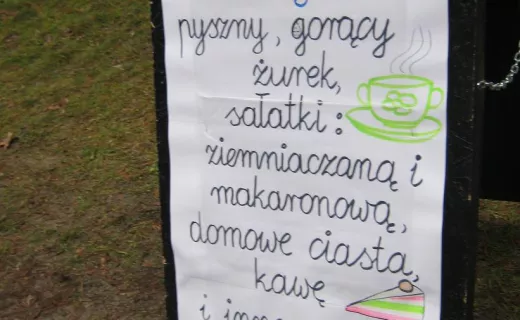 pyszny, gorący
żurek,
sałatki:
ziemniaczaną i
makaronową,
domowe ciasta,
kawę
i